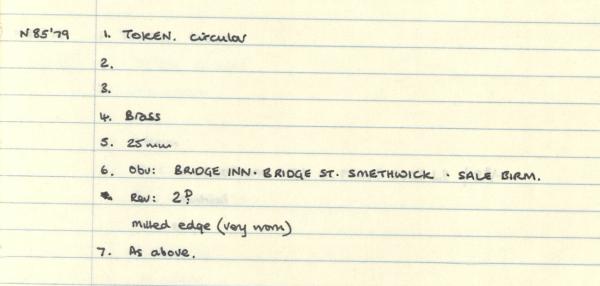 N 85'79 1. TOKEN. circular
2.
3.
4. Brass
5. 25mm
6. Obv: BRIDGE INN. BRIDGE ST. SMETHWICK . SALE BIRM.
Rev: 2D
Milled edge (very worn)
7. As above.